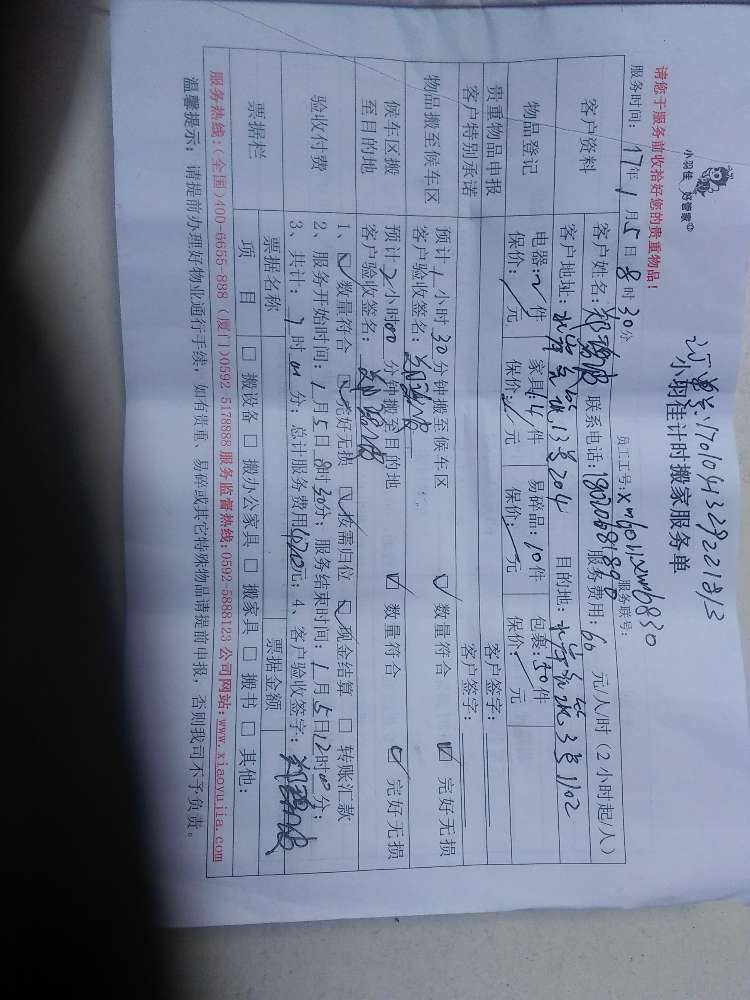 小羽佳 好管家
小羽佳计时搬家服务单
请您于服务前收拾好您的贵重物品!
服务时间: 17年 1月 5日 8时 30分 员工工号: 服务联号:
客户资料 客户姓名: 联系电话: 服务费用: 60 元/人/时 (2小时起/人)
客户地址: 13号204 目的地: 3号1102
物品登记 电器: 2件 家具: 14件 易碎品: 10件 包裹: 50件
保价: / 元 保价: / 元 保价: / 元 保价: / 元
贵重物品申报 客户签字:
客户特别承诺 客户签字:
物品搬至候车区 预计 1 小时 30 分钟搬至候车区 ☑ 数量符合 ☑ 完好无损
客户验收签名:
候车区搬至目的地 预计 2 小时 00 分钟搬至目的地 ☑ 数量符合 ☑ 完好无损
客户验收签名:
验收付费 1、☑ 数量符合 ☑ 完好无损 ☑ 按需归位 ☑ 现金结算 □ 转账汇款
2、服务开始时间: 1月5日 8时30分; 服务结束时间: 1月5日12时00分;
3、共计: 7时00分; 总计服务费用420元; 4、客户验收签字:
票据栏 票据名称 票据金额
项目 □ 搬设备 □ 搬办公家具 □ 搬家具 □ 搬书 □ 其他:
服务热线:(全国)400-6655-888 (厦门)0592-5178888 服务监督热线:0592-5888123 公司网站:www.xiaoyujia.com
温馨提示: 请提前办理好物业通行手续, 如有贵重、易碎或其它特殊物品请提前申报, 否则我司不予负责。